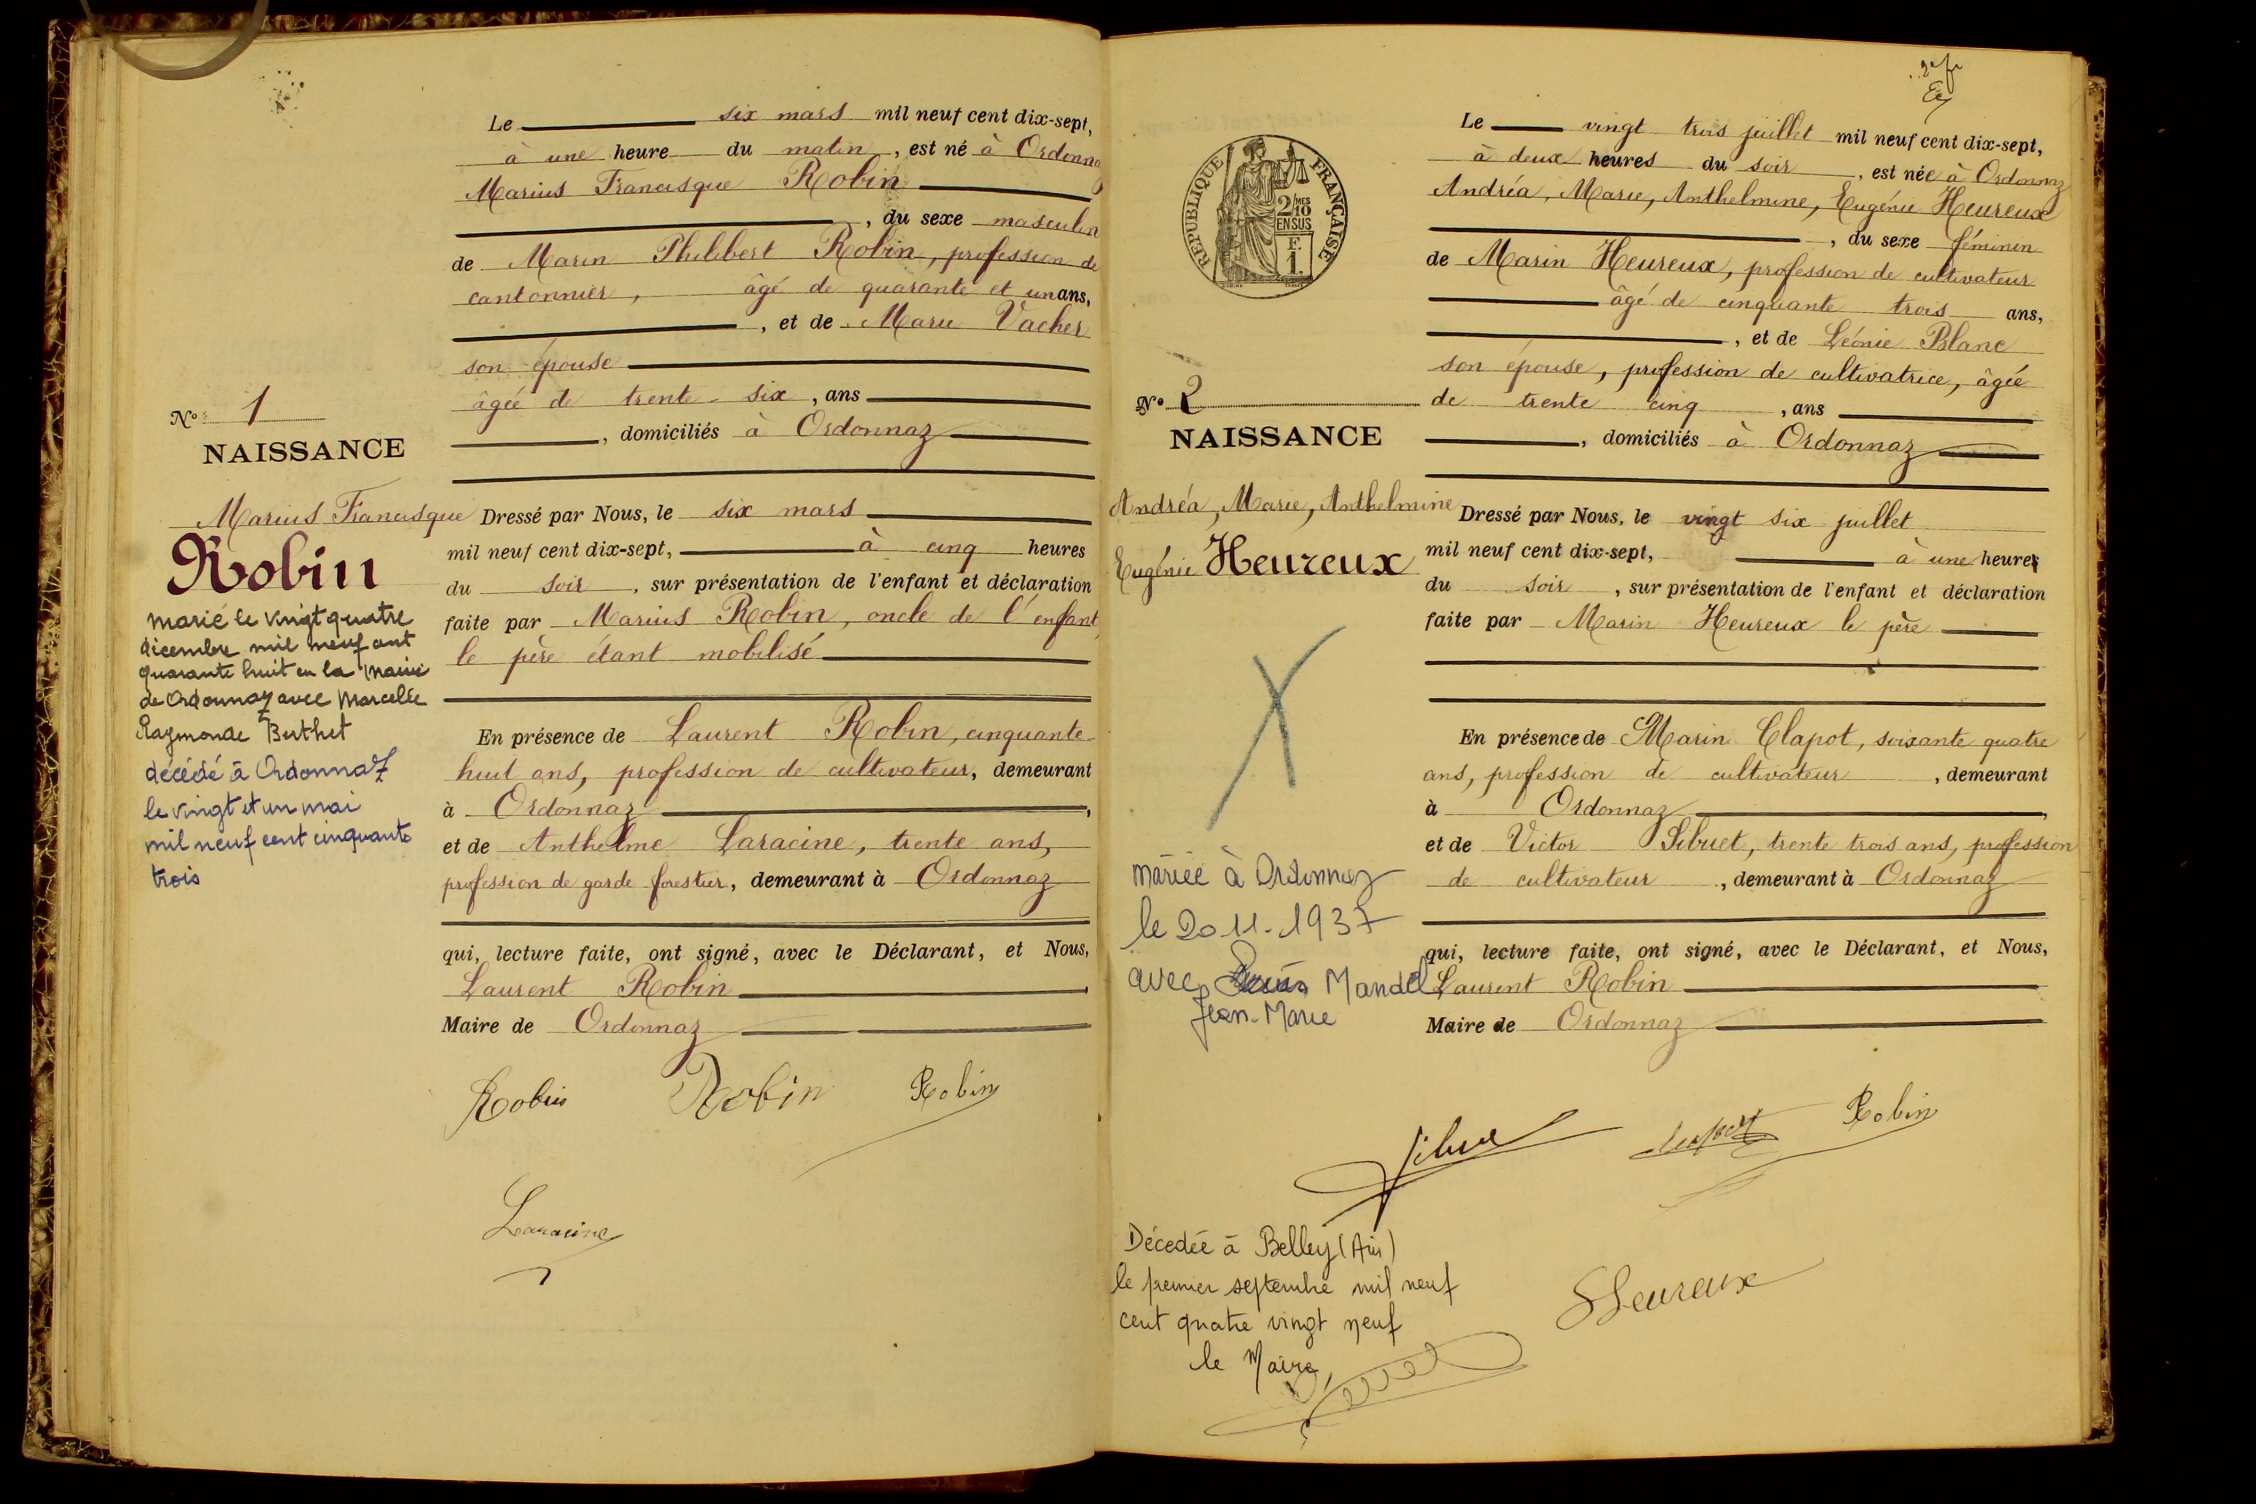 Le six mars mil neuf cent dix-sept,
à une heure du matin, est né à Ordonnaz
Marius Francisque Robin
, du sexe masculin
de Marin Philibert Robin, profession de
cantonnier, âgé de quarante et un ans,
, et de Marie Vacher
son épouse
âgée de trente six, ans
, domiciliés à Ordonnaz
N° 1
NAISSANCE
Marius Francisque
Robin
marié le vingt quatre
décembre mil neuf cent
quarante huit en la mairie
de Ordonnaz avec Marcelle
Raymonde Berthet
décédé à Ordonnaz
le vingt et un mai
mil neuf cent cinquante
trois
Dressé par Nous, le six mars
mil neuf cent dix-sept, à cinq heures
du soir, sur présentation de l'enfant et déclaration
faite par Marius Robin, oncle de l'enfant,
le père étant mobilisé
En présence de Laurent Robin, cinquante
huit ans, profession de cultivateur, demeurant
à Ordonnaz,
et de Anthelme Laracine, trente ans,
profession de garde forestier, demeurant à Ordonnaz
qui, lecture faite, ont signé, avec le Déclarant, et Nous,
Laurent Robin
Maire de Ordonnaz
Robin Robin Robin
Laracine
RÉPUBLIQUE FRANÇAISE
2/10 MES
EN SUS
F.
1.
Le vingt trois juillet mil neuf cent dix-sept,
à deux heures du soir, est née à Ordonnaz
Andréa, Marie, Anthelmine, Eugénie Heureux
, du sexe féminin
de Marin Heureux, profession de cultivateur
âgé de cinquante trois ans,
, et de Léonie Blanc
son épouse, profession de cultivatrice, âgée
de trente cinq, ans
, domiciliés à Ordonnaz
N° 2
NAISSANCE
Andréa, Marie, Anthelmine
Eugénie Heureux
mariée à Ordonnaz
le 20 11-1937
avec Mandel
Jean-Marie
Dressé par Nous, le vingt six juillet
mil neuf cent dix-sept, à une heure
du soir, sur présentation de l'enfant et déclaration
faite par Marin Heureux le père
En présence de Marin Clapot, soixante quatre
ans, profession de cultivateur, demeurant
à Ordonnaz,
et de Victor Sibuet, trente trois ans, profession
de cultivateur, demeurant à Ordonnaz
qui, lecture faite, ont signé, avec le Déclarant, et Nous,
Laurent Robin
Maire de Ordonnaz
Sibuet Clapot Robin
Heureux
Décédée à Belley (Ain)
le premier septembre mil neuf
cent quatre vingt neuf
le Maire,